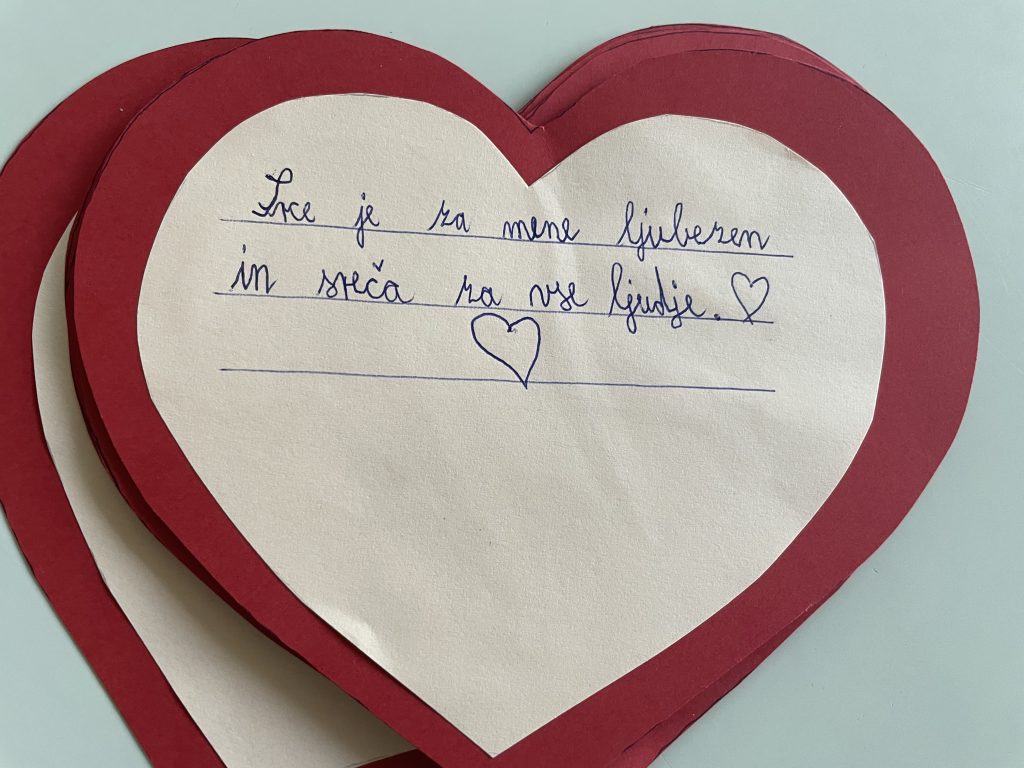 Srce je za mene ljubezen
in sreča za vse ljudje.